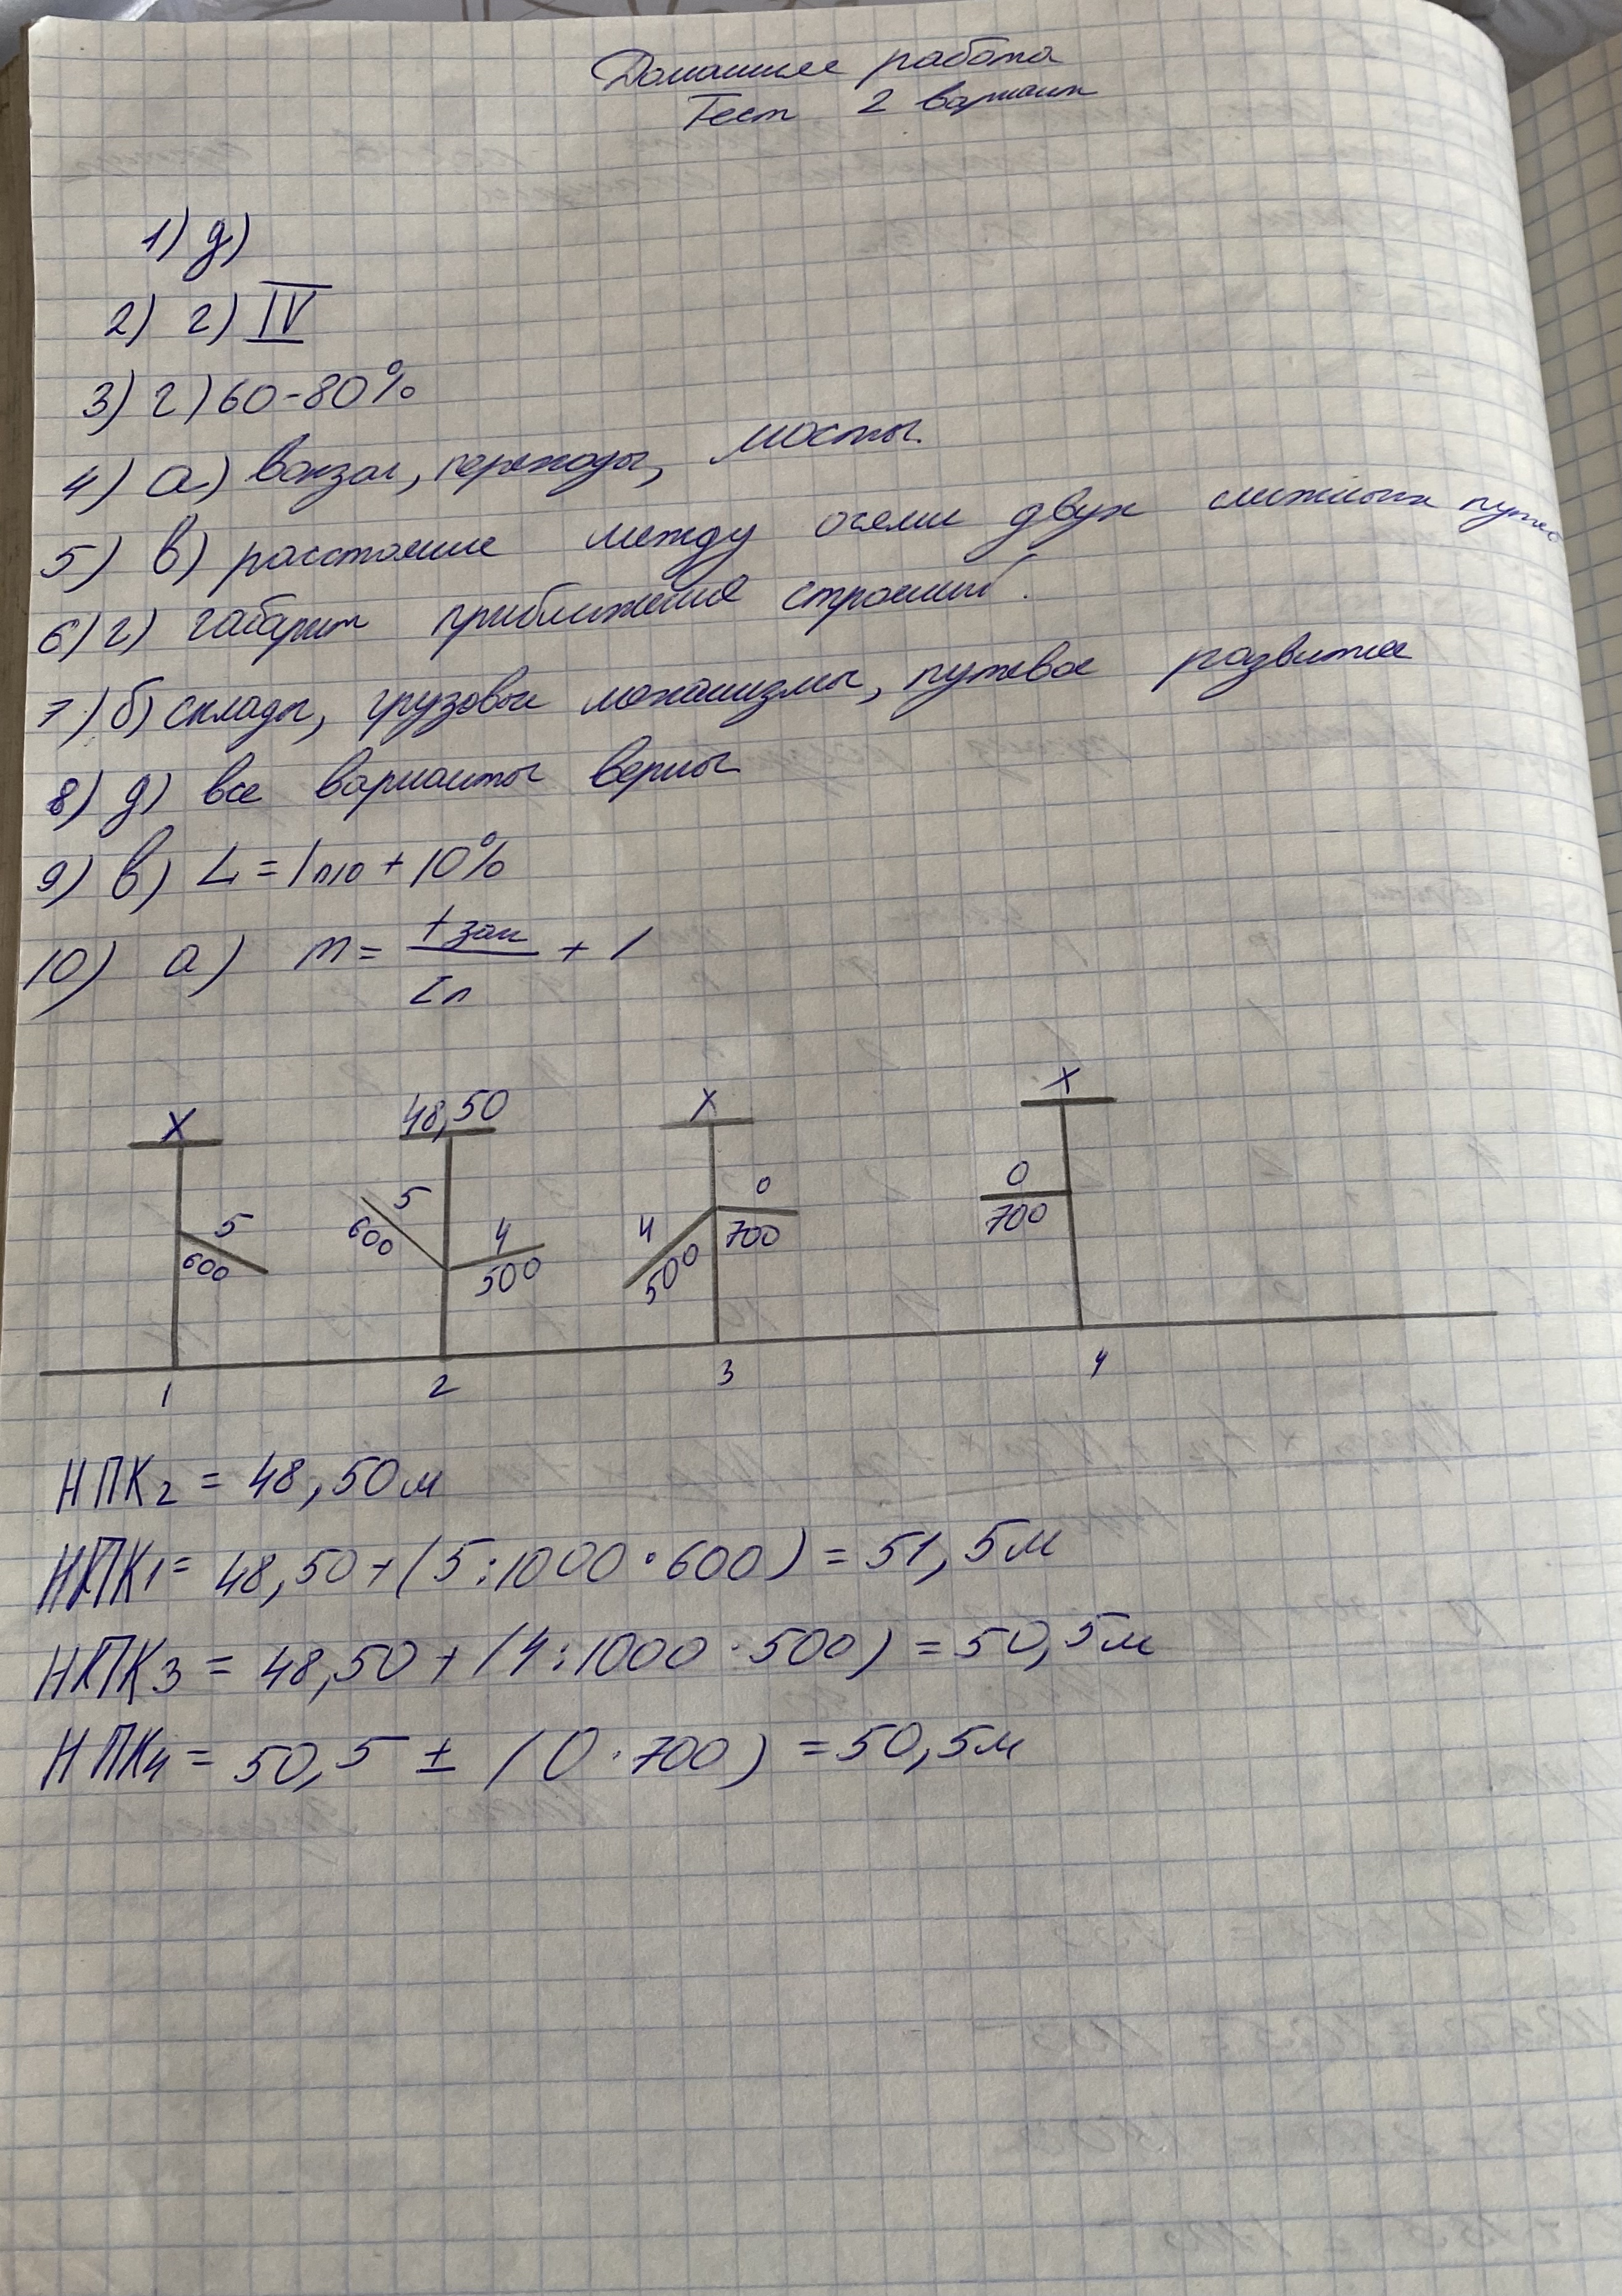 Домашнее работа
Тест 2 вариант
1) д)
2) г) IV
3) г) 60-80%
4) а) вокзал, переходы, мосты.
5) в) расстояние между осями двух смежных путей
6) г) габарит приближения строений.
7) б) склады, грузовые механизмы, путевое развитие
8) д) все варианты верны
9) в) L = lпло + 10%
10) а) m = tзан / Iп + 1
X 48,50 X X
5 600 5 600 4 500 4 500 0 700 0 700
1 2 3 4
НПК2 = 48,50м
НПК1 = 48,50+(5:1000·600) = 51,5м
НПК3 = 48,50+(4:1000·500) = 50,5м
НПК4 = 50,5 ± (0·700) = 50,5м